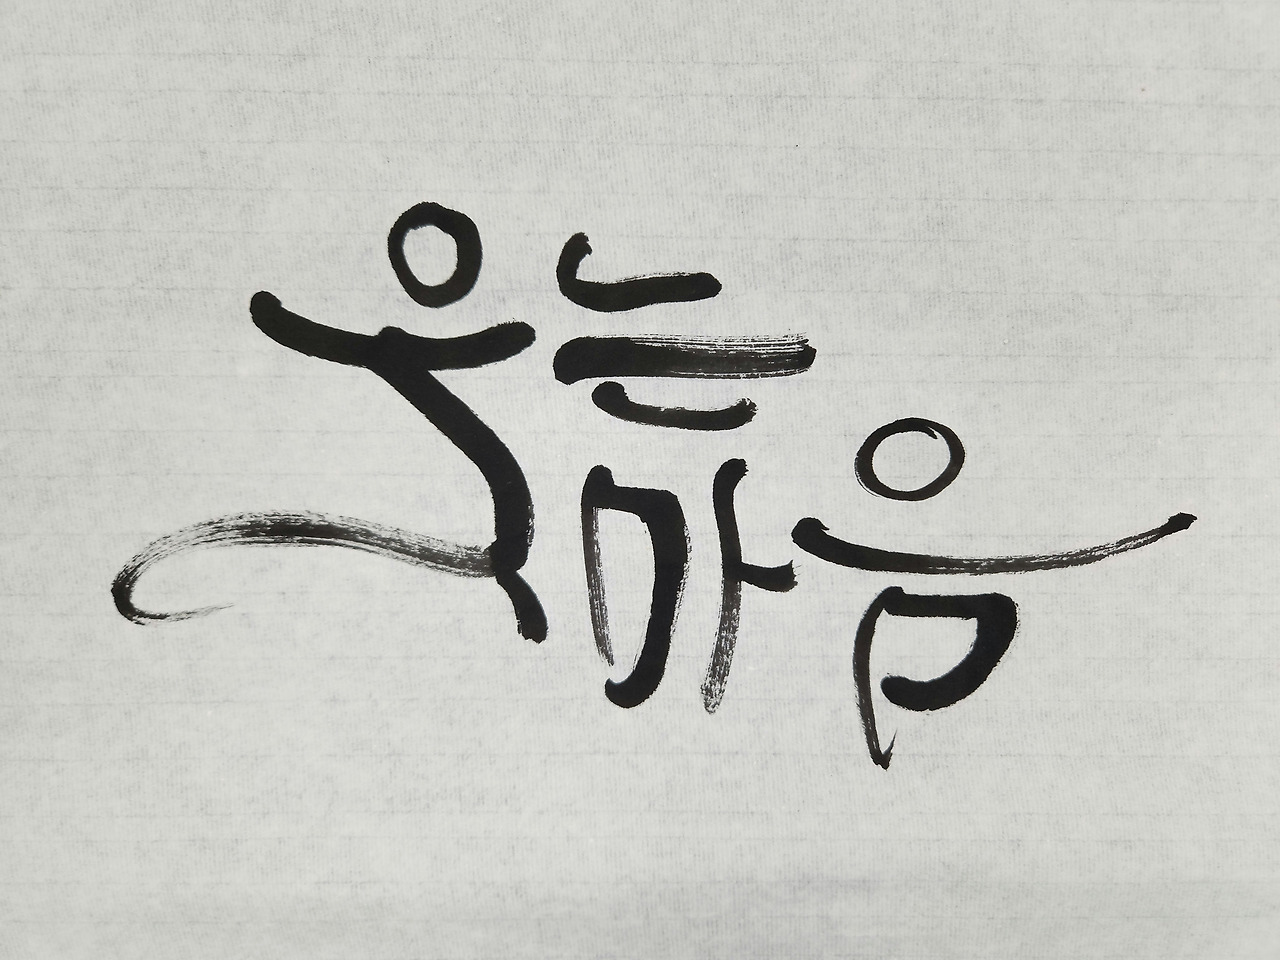 웃는
마음